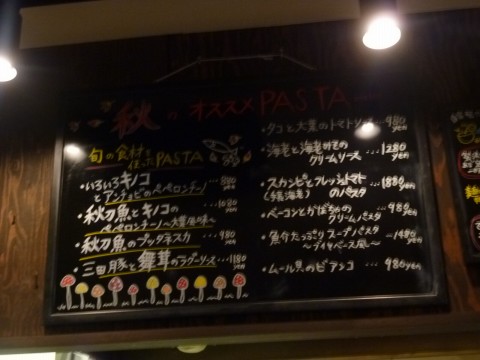 秋のオススメPASTA
旬の食材を
使ったPASTA
・いろいろキノコ
とアンチョビのペペロンチーノ…880
yen
・秋刀魚とキノコの
ペペロンチーノ〜大葉風味〜
1080
yen
・秋刀魚のプッタネスカ…980
yen
・三田豚と舞茸のラグーソース…1180
yen
・タコと大葉のトマトソース…980
yen
・海老と海老みその
クリームソース…1280
yen
・スカンピとフレッシュトマト
(手長海老)のパスタ…1880
yen
・ベーコンとかぼちゃの
クリームパスタ…980
yen
・魚介たっぷりスープパスタ…1480
yen
〜ブイヤベース風〜
・ムール貝のビアンコ…980yen